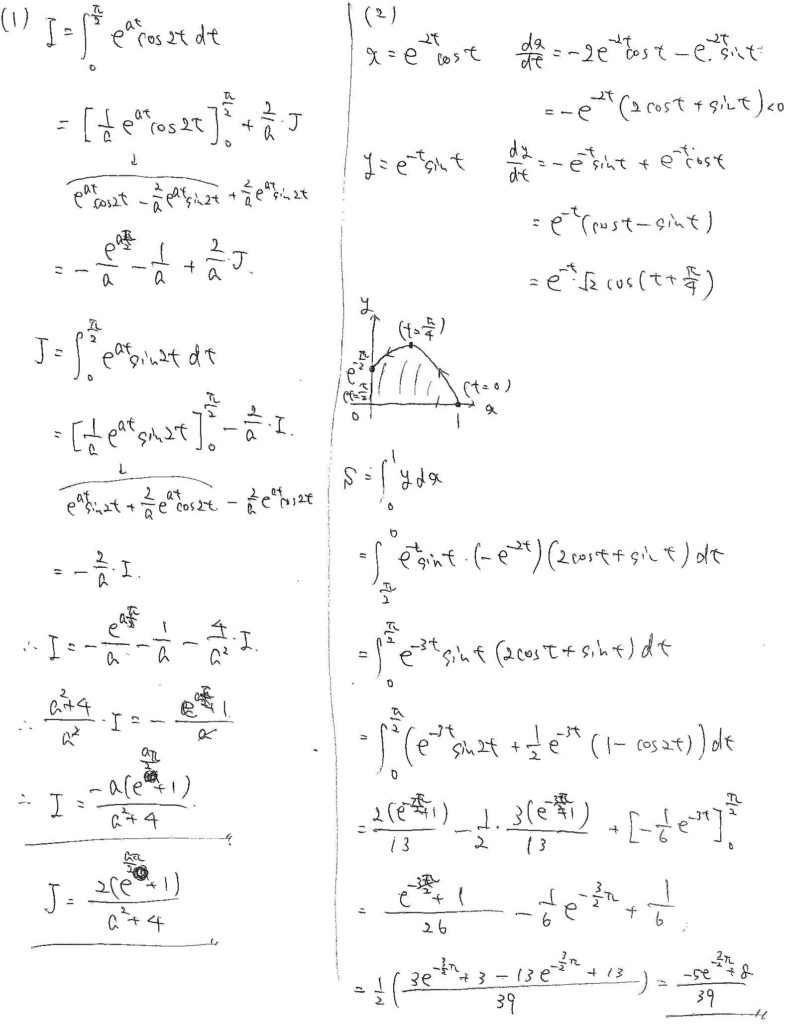 (1) I = ∫₀^{π/2} e^{at} cos2t dt
= [1/a e^{at} cos2t]₀^{π/2} + 2/a · J
↓
e^{at} cos2t - 2/a e^{at} sin2t + 2/a e^{at} sin2t
= - e^{aπ/2}/a - 1/a + 2/a · J.
J = ∫₀^{π/2} e^{at} sin2t dt
= [1/a e^{at} sin2t]₀^{π/2} - 2/a · I.
↓
e^{at} sin2t + 2/a e^{at} cos2t - 2/a e^{at} cos2t
= - 2/a · I.
∴ I = - e^{aπ/2}/a - 1/a - 4/a² · I.
∴ (a²+4)/a² · I = - (e^{aπ/2}+1)/a
∴ I = -a(e^{aπ/2}+1)/(a²+4)
J = 2(e^{aπ/2}+1)/(a²+4)
(2)
x = e^{-2t} cost  dx/dt = -2e^{-2t} cost - e^{-2t} sint
= -e^{-2t} (2cost + sint) < 0
y = e^{-t} sint  dy/dt = -e^{-t} sint + e^{-t} cost
= e^{-t} (cost - sint)
= e^{-t} · √2 cos(t + π/4)
y
(t = π/4)
e^{-π/2}
(t = π/2)
(t = 0)
0 1 x
S = ∫₀¹ y dx
= ∫_{π/2}^0 e^{-t} sint · (-e^{-2t}) (2cost + sint) dt
= ∫₀^{π/2} e^{-3t} sint (2cost + sint) dt
= ∫₀^{π/2} (e^{-3t} sin2t + 1/2 e^{-3t} (1 - cos2t)) dt
= 2(e^{-3π/2}+1)/13 - 1/2 · 3(e^{-3π/2}+1)/13 + [-1/6 e^{-3t}]₀^{π/2}
= (e^{-3π/2}+1)/26 - 1/6 e^{-3/2 π} + 1/6
= 1/2 ((3e^{-3/2 π} + 3 - 13e^{-3/2 π} + 13)/39) = (-5e^{-3/2 π} + 8)/39